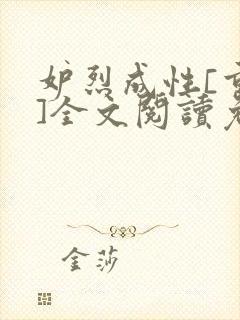 妒烈成性[重
]全文閱讀免
金莎